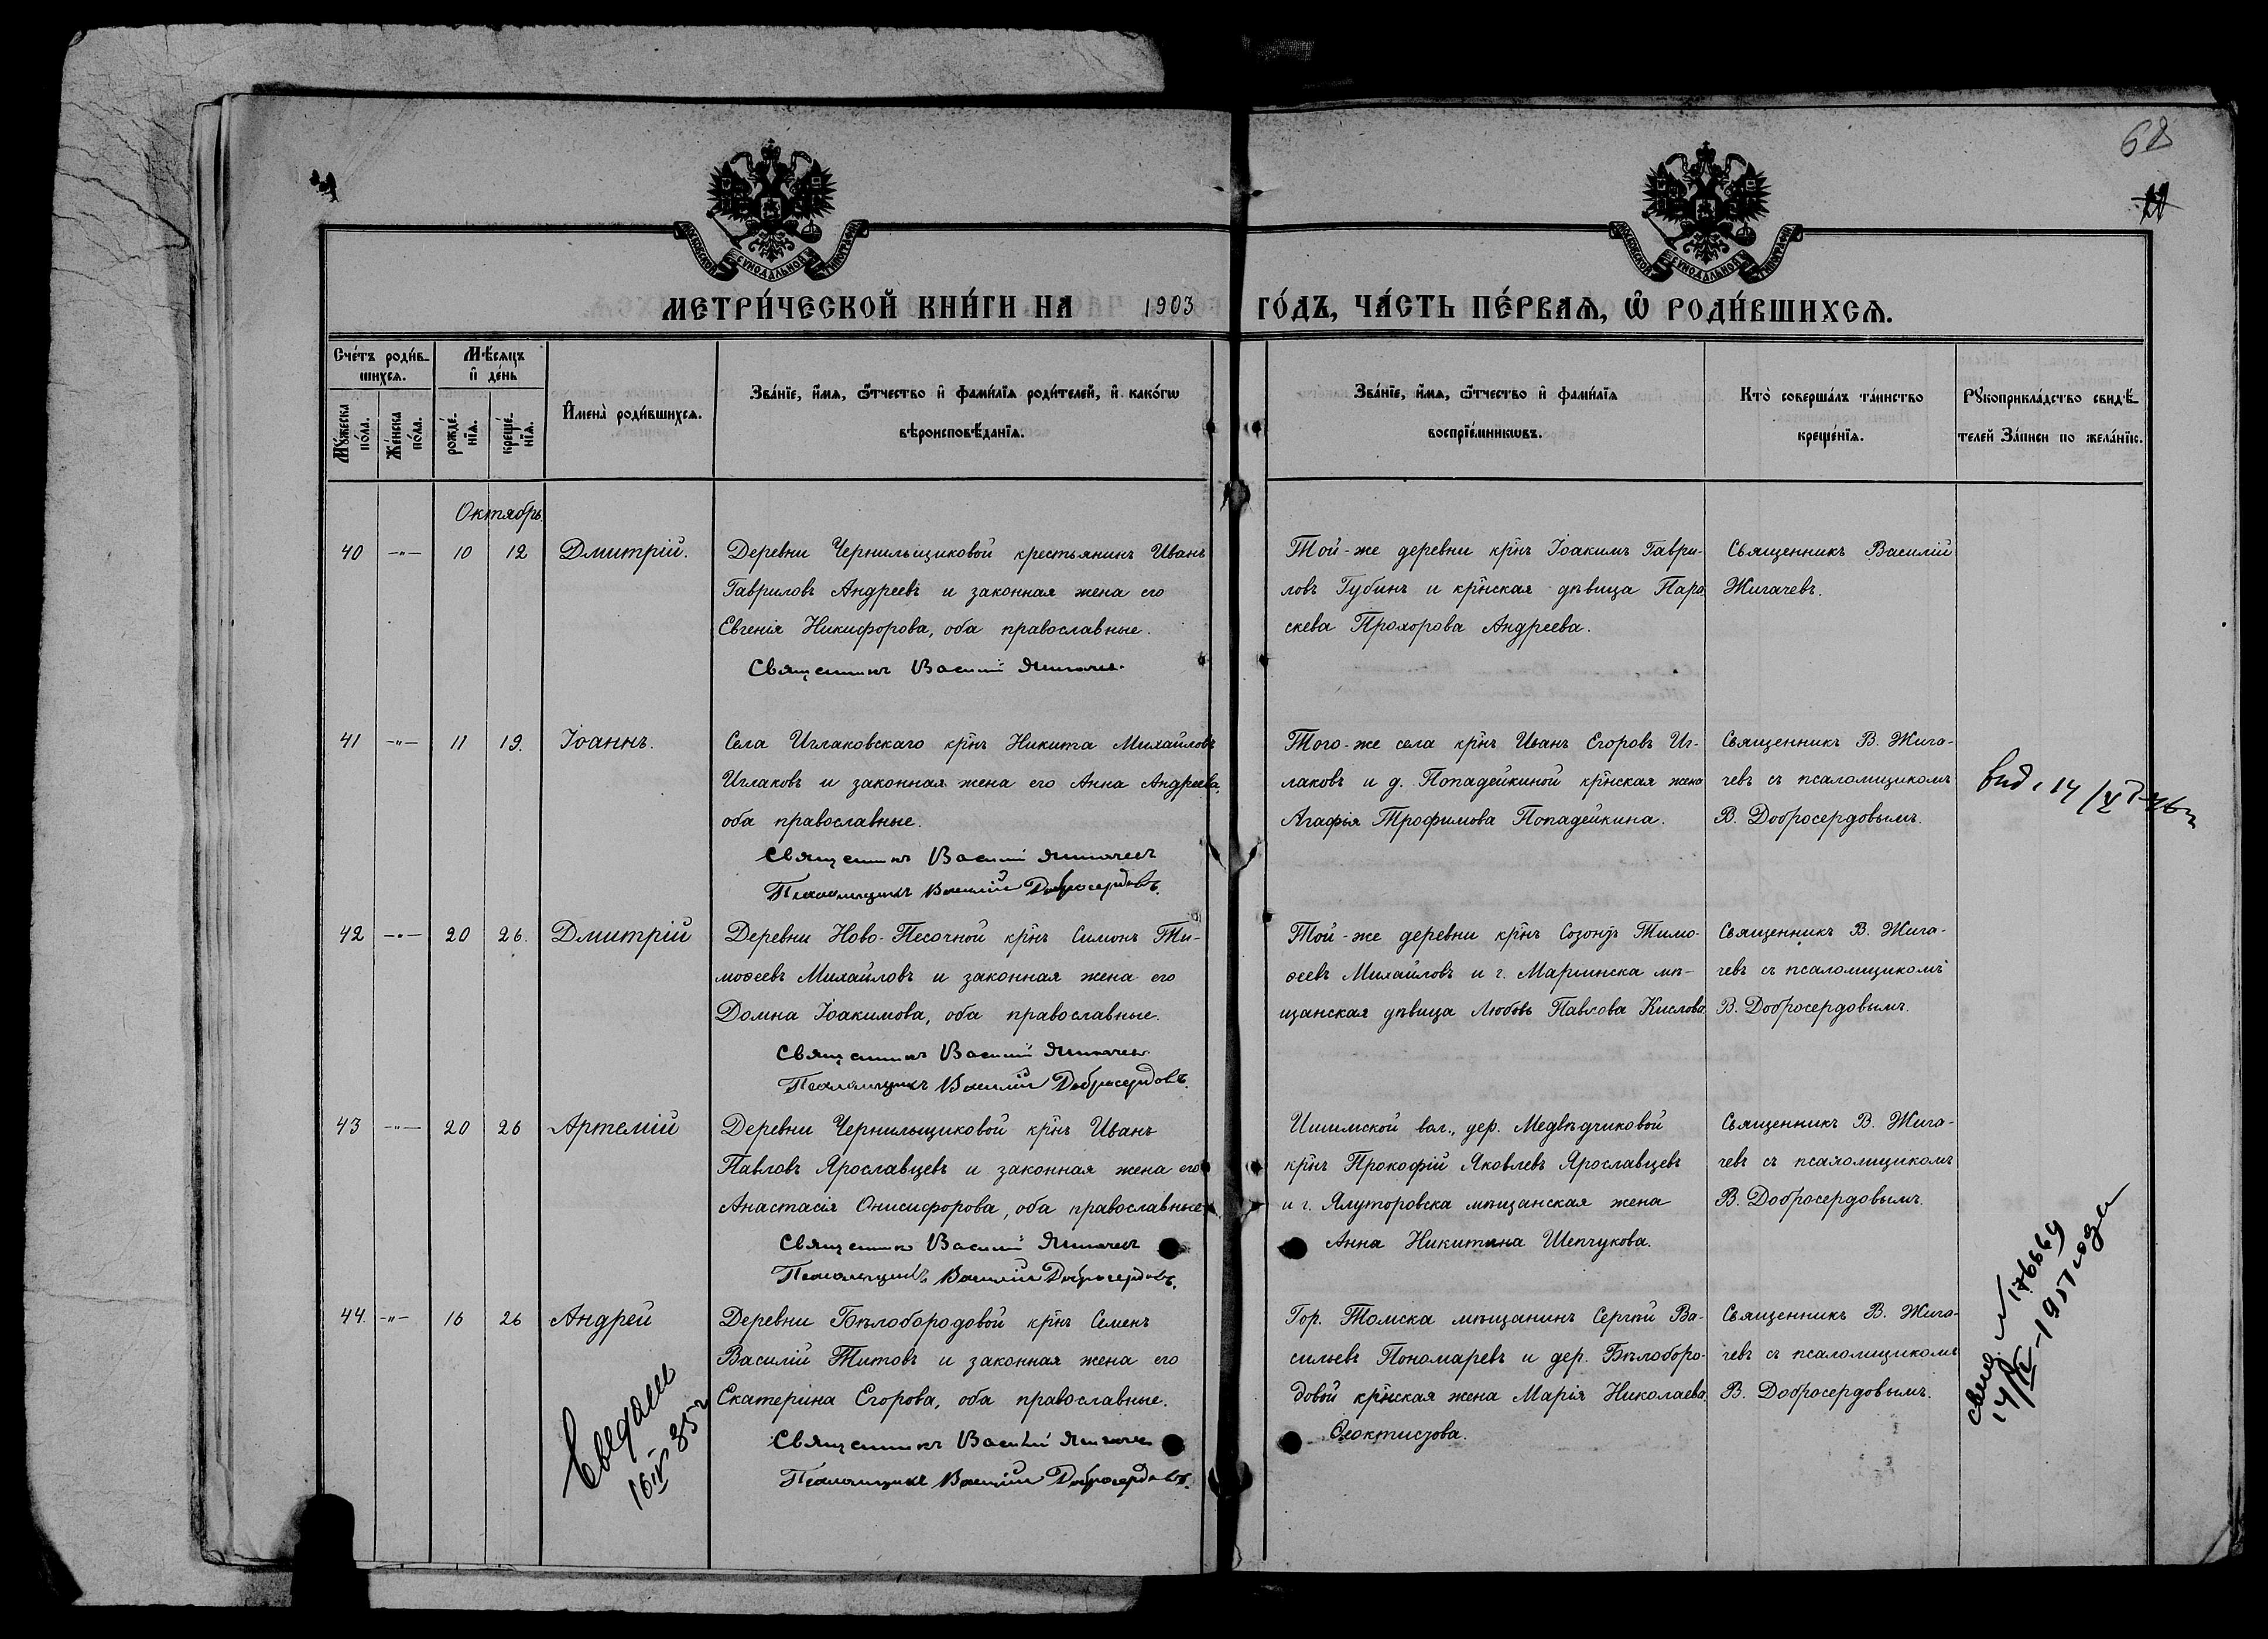 68
МОСКОВСКОЙ СѴНОДАЛЬНОЙ ТИПОГРАФІИ
МОСКОВСКОЙ СѴНОДАЛЬНОЙ ТИПОГРАФІИ
МЕТРИ́ЧЕСКОЙ КНИ́ГИ НА 1903 ГО́ДЪ, ЧА́СТЬ ПЕ́РВАѦ, Ѡ РОДИ́ВШИХСѦ.
Сче́тъ роди́в-
шихсѧ.
Мѣ́сѧцъ
и де́нь
Мꙋ́жеска
по́ла.
Же́нска
по́ла.
рожде́-
нїѧ.
креще́-
нїѧ.
Имена̀ роди́вшихсѧ.
Зва́нїе, и́мѧ, ѻ́тчество и фами́лїѧ роди́телей, и како́гѡ
вѣроисповѣ́данїѧ.
Зва́нїе, и́мѧ, ѻ́тчество и фами́лїѧ
воспрїе́мникѡвъ.
Кто̀ соверша́лъ та́инство
креще́нїѧ.
Рꙋкоприкла́дство свидѣ́-
телей за́писи по жела́нїю.
Октябрь.
40 -"- 10 12 Дмитрій.
Деревни Чернильщиковой крестьянинъ Иванъ
Гавриловъ Андреевъ и законная жена его
Евгенія Никифорова, оба православные.
Священникъ Василій Жигачев
Той-же деревни кр̃нъ Іоакимъ Гаври-
ловъ Губинъ и кр̃нская дѣвица Пара
скева Прохорова Андреева.
Священникъ Василій
Жигачевъ.
41 -"- 11 19. Іоаннъ.
Села Иглаковскаго кр̃нъ Никита Михайловъ
Иглаковъ и законная жена его Анна Андреева,
оба православные.
Священникъ Василій Жигачевъ
Псаломщикъ Василій Добросердовъ.
Того-же села кр̃нъ Иванъ Егоровъ Иг-
лаковъ и д. Попадейкиной кр̃нская жена
Агафья Трофимова Попадейкина.
Священникъ В. Жига-
чевъ съ псаломщикомъ
В. Добросердовымъ.
42 -"- 20 26. Дмитрій
Деревни Ново-Песочной кр̃нъ Симонъ Ти-
моѳеевъ Михайловъ и законная жена его
Домна Іоакимова, оба православные.
Священникъ Василій Жигачев
Псаломщикъ Василій Добросердовъ.
Той-же деревни кр̃нъ Созонтъ Тимо-
ѳеевъ Михайловъ и г. Маріинска мѣ-
щанская дѣвица Любовь Павлова Кислова.
Священникъ В. Жига-
чевъ съ псаломщикомъ
В. Добросердовымъ.
43 -"- 20 26 Артемій
Деревни Чернильщиковой кр̃нъ Иванъ
Павловъ Ярославцевъ и законная жена его
Анастасія Онисифорова, оба православные
Священникъ Василій Жигачевъ
Псаломщикъ Василій Добросердовъ.
Ишимской вол., дер. Медвѣдчиковой
кр̃нъ Прокофій Яковлевъ Ярославцевъ
и г. Ялуторовска мѣщанская жена
Анна Никитина Шепчукова.
Священникъ В. Жига-
чевъ съ псаломщикомъ
В. Добросердовымъ.
44. -"- 16 26 Андрей
Деревни Бѣлобородовой кр̃нъ Семенъ
Василій Титовъ и законная жена его
Екатерина Егорова, оба православные.
Священникъ Василій Жигачев
Псаломщикъ Василій Добросердовъ.
Гор. Томска мѣщанинъ Сергѣй Ва-
сильевъ Пономаревъ и дер. Бѣлоборо-
довой кр̃нская жена Марія Николаева
Ѳеоктистова.
Священникъ В. Жига-
чевъ съ псаломщикомъ
В. Добросердовымъ.